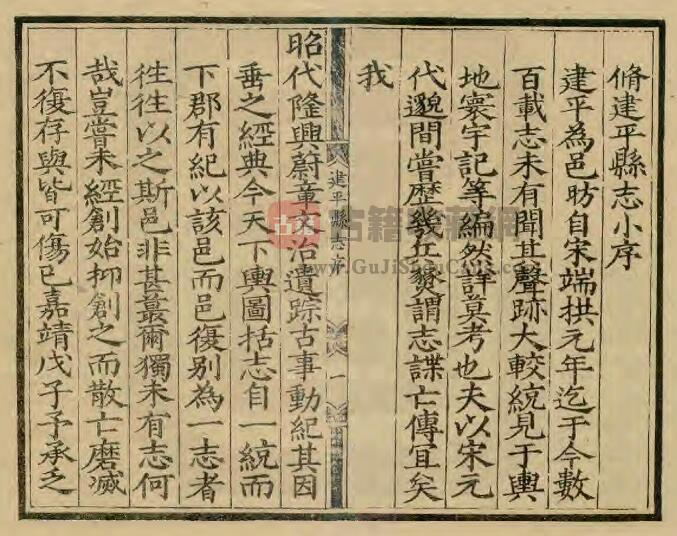 脩建平縣志小序
建平為邑昉自宋端拱元年迄于今數
百載志未有聞其聲跡大較統見于輿
地寰宇記等編然詳莫考也夫以宋元
代邈間嘗歷幾兵燹謂志諜亡傳宜矣
我
建平縣志序
一
昭代隆興蔚章文治遺踪古事動紀其因
垂之經典今天下輿圖括志自一統而
下郡有紀以該邑而邑復别為一志者
徃徃以之斯邑非甚蕞爾獨未有志何
哉豈嘗未經創始抑創之而散亡磨滅
不復存與皆可傷已嘉靖戊子予承乏
www.GuJiShouCang.com